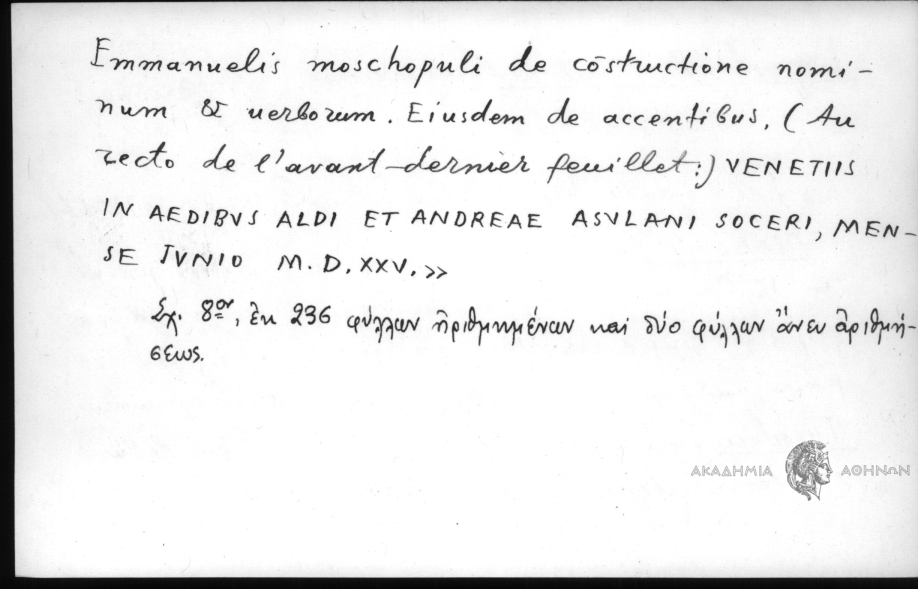 Emmanuelis moschopuli de cōstructione nomi-
num & uerborum. Eiusdem de accentibus, (Au
recto de l'avant-dernier feuillet:) VENETIIS
IN AEDIBVS ALDI ET ANDREAE ASVLANI SOCERI, MEN-
SE IVNIO M. D. XXV. »
Σχ. 8ον, ἐκ 236 φύλλων ἠριθμημένων καὶ δύο φύλλων ἄνευ ἀριθμή-
σεως.
ΑΚΑΔΗΜΙΑ ΑΘΗΝΩΝ